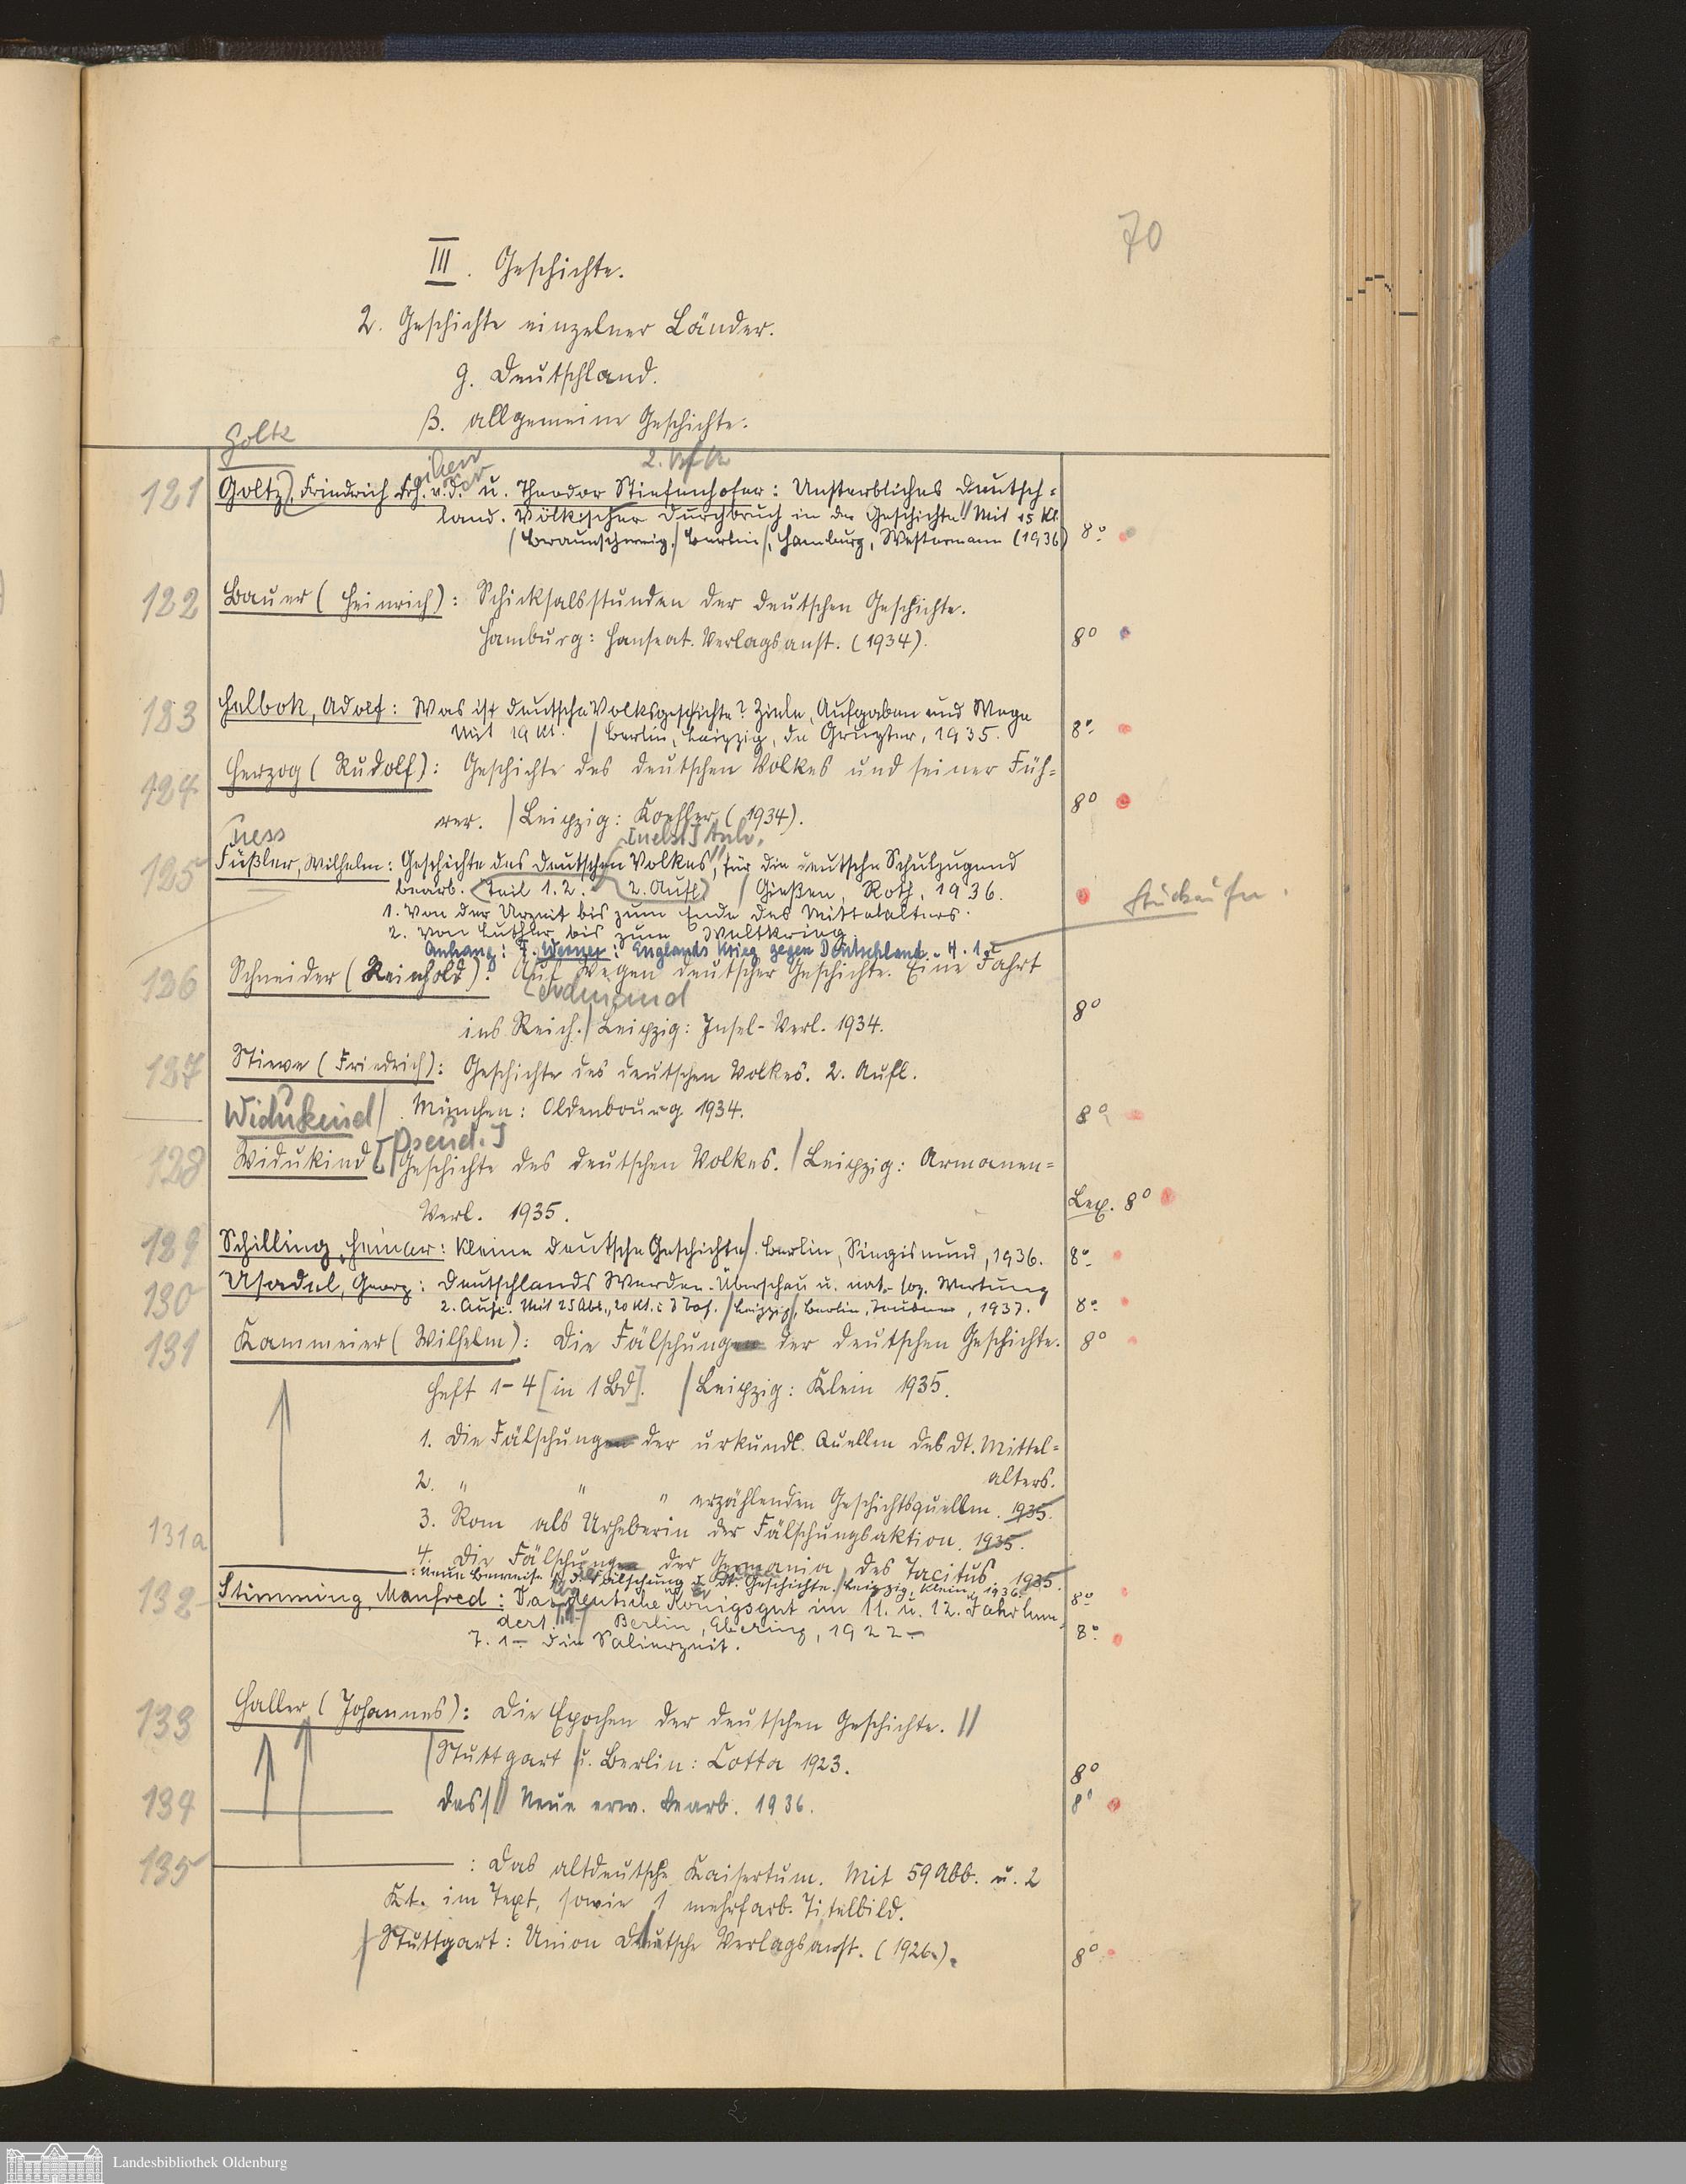 70
III. Geschichte.
2. Geschichte einzelner Länder.
g. Deutschland.
β. allgemeine Geschichte.
Goltz
2. Aufl.
121 Goltz, Friedrich Frh. v. d. u. Theodor Stiefenhofer: Unsterbliches Deutsch-
land. Völkischer Durchbruch in der Geschichte. Mit 15 Kt.
Braunschweig, Berlin, Hamburg, Westermann (1936) 8°
122 Bauer (Heinrich): Schicksalsstunden der deutschen Geschichte.
Hamburg: Hanseat. Verlagsanst. (1934). 8°
123 Helbok, Adolf: Was ist deutsche Volksgeschichte? Ziele, Aufgaben und Wege
Mit 19 Kt. Berlin, Leipzig, de Gruyter, 1935. 8°
124 Herzog (Rudolf): Geschichte des deutschen Volkes und seiner Füh-
rer. Leipzig: Koehler (1934). 8°
[nebst] Anh.
125 Füßler, Wilhelm: Geschichte des deutschen Volkes, für die deutsche Schuljugend
bearb. Teil 1.2. 2. Aufl. Gießen, Roth, 1936.
1. Von der Urzeit bis zum Ende des Mittelalters.
2. Von Luther bis zum Weltkrieg
Anhang: F. Werner: Englands Krieg gegen Deutschland. H. 1.
126 Schneider (Reinhold): Auf Wegen deutscher Geschichte. Eine Fahrt
ins Reich. Leipzig: Insel-Verl. 1934. 8°
Ferdinand
127 Stieve (Friedrich): Geschichte des deutschen Volkes. 2. Aufl.
München: Oldenbourg 1934. 8°
Widukind
[Pseud.]
128 Widukind Geschichte des deutschen Volkes. Leipzig: Armanen-
Verl. 1935. Lex. 8°
129 Schilling, Heinar: Kleine deutsche Geschichte. Berlin, Singismund, 1936. 8°
130 Usadel, Georg: Deutschlands Werden. Überschau u. nat.-soz. Wertung
2. Aufl. Mit 25 Abb., 20 Kt. 3 Taf. Leipzig, Berlin, Teubner, 1937. 8°
131 Kammeier (Wilhelm): Die Fälschung der deutschen Geschichte. 8°
Heft 1-4 [in 1 Bd]. Leipzig: Klein 1935.
1. Die Fälschung der urkundl. Quellen des dt. Mittel-
alters.
2. " " " erzählenden Geschichtsquellen. 1935.
3. Rom als Urheberin der Fälschungsaktion. 1935.
4. Die Fälschung der Germania des Tacitus. 1935.
131a : Neue Beweise f. d. Fälschung d. dt. Geschichte. Leipzig, Klein, 1936. 8°
132 Stimming, Manfred: Das deutsche Königsgut im 11. u. 12. Jahrhun-
dert. Berlin, Ebering, 1922- 8°
T. 1- Die Salierzeit.
133 Haller (Johannes): Die Epochen der deutschen Geschichte.
Stuttgart u. Berlin: Cotta 1923. 8°
134 Das. Neue erw. Bearb. 1936. 8°
135 : Das altdeutsche Kaisertum. Mit 59 Abb. u. 2
Kt. im Text, sowie 1 mehrfarb. Titelbild.
Stuttgart: Union Deutsche Verlagsanst. (1926.). 8°
Landesbibliothek Oldenburg